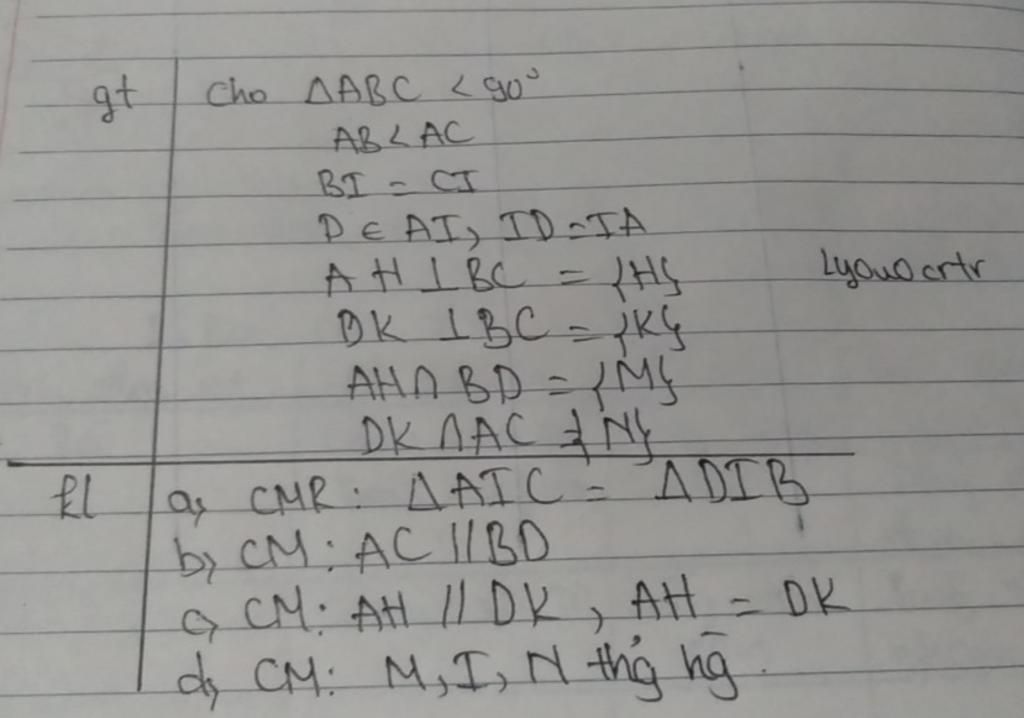 gt Cho ΔABC < 90°
AB < AC
BI = CI
D ∈ AI, ID = IA
AH ⊥ BC = {H}
DK ⊥ BC = {K}
AH ∩ BD = {M}
DK ∩ AC = {N}
kl a, CMR: ΔAIC = ΔDIB
b, CM: AC // BD
c, CM: AH // DK, AH = DK
d, CM: M, I, N thẳng hg̅.